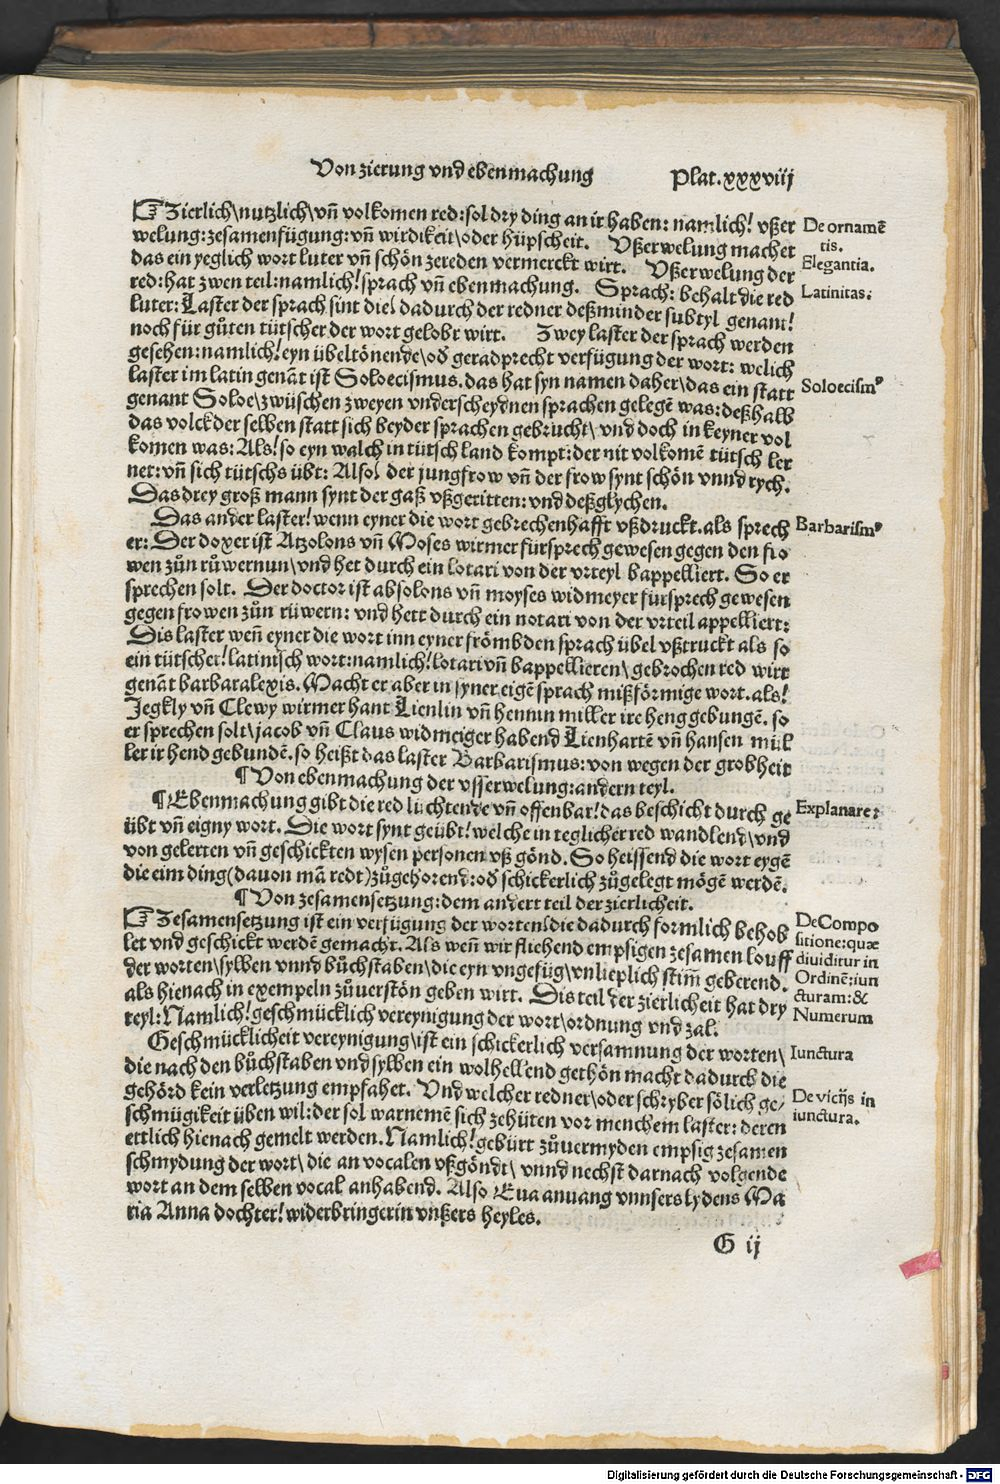 Von zierung vnd ebenmachung
Plat. xxxviij
☞ Zierlich\ nutzlich\ vñ volkomen red: sol dry ding an ir haben: namlich! vßer
welung: zesamenfügung: vñ wirdikeit\ oder hüpscheit. Vßerwelung machet
das ein yeglich wort luter vñ schön zereden vermerckt wirt. Vßerwelung der
red: hat zwen teil: namlich! sprach vñ ebenmachung. Sprach: behalt die red
luter: Laster der sprach sint die! dadurch der redner deßminder subtyl genant!
noch für gůten tütscher der wort gelobt wirt. Zwey laster der sprach werden
gesehen: namlich! eyn übeltönende\ oď geradprecht verfügung der wort: welich
laster im latin genāt ist Soloecismus. das hat syn namen daher\ das ein statt
genant Soloe\ zwüschen zweyen vnderscheydnen sprachen gelegē was: deßhalb
das volck der selben statt sich beyder sprachen gebrucht\ vnd doch in keyner vol
komen was: Als! so eyn walch in tütsch land kompt: der nit volkomē tütsch ler
net: vñ sich tütschs übt: Also! der jungfrow vñ der frow synt schön vnnd rych.
Das drey groß mann synt der gaß vßgeritten: vnd deßglychen.
Das ander laster! wenn eyner die wort gebrechenhafft vßdruckt. als sprech
er: Der doxer ist Atzolons vñ Moses wirmer fürsprech gewesen gegen den fro
wen zůn růwernun\ vnd het durch ein lotari von der vrteyl bappelliert. So er
sprechen solt. Der doctor ist absolons vñ moyses widmeyer fürsprech gewesen
gegen frowen zůn rüwern: vnd hett durch ein notari von der vrteil appelliert:
Dis laster weñ eyner die wort inn eyner frömbden sprach übel vßtruckt als so
ein tütscher! latinisch wort: namlich! lotari vñ bappellieren\ gebrochen red wirt
genāt barbaralexis. Macht er aber in syner eigē sprach mißförmige wort. als!
Jegkly vñ Clewy wirmer hant Lienlin vñ hennin miller ire heng gebungē. so
er sprechen solt\ jacob vñ Claus widmeiger habend Lienhartē vñ hansen mül
ler ir hend gebundē. so heißt das laster Barbarismus: von wegen der grobheit
¶ Von ebenmachung der vsserwelung: andern teyl.
¶ Ebenmachung gibt die red lüchtende vñ offenbar! das beschicht durch ge
übt vñ eigny wort. Die wort synt geübt! welche in teglicher red wandlend\ vnd
von gelerten vñ geschickten wysen personen vß gönd. So heissend die wort eygē
die eim ding (dauon mā redt) zůgehorend: oď schickerlich zůgelegt mögē werdē.
¶ Von zesamensetzung: dem andert teil der zierlicheit.
☞ Zesamensetzung ist ein verfügung der worten! die dadurch formlich behob
let vnd geschickt werdē gemacht. Als weñ wir fliehend empsigen zesamen louff
der worten\ sylben vnnd bůchstaben\ die eyn vngefüg\ vnlieplich stim̄ geberend.
als hienach in exempeln zůuerstön geben wirt. Dis teil der zierlicheit hat dry
teyl: Namlich! geschmücklich vereynigung der wort\ ordnung vnd zal.
Geschmücklicheit vereynigung\ ist ein schickerlich versamnung der worten\
die nach den bůchstaben vnd sylben ein wolhellend gethön macht dadurch die
gehörd kein verletzung empfahet. Vnd welcher redner\ oder schryber sölich ge⸗
schmügikeit üben wil: der sol warnemē sich zehüten vor menchem laster: deren
ettlich hienach gemelt werden. Namlich! gebürt zůuermyden empsig zesamen
schmydung der wort\ die an vocalen vßgöndt\ vnnd nechst darnach volgende
wort an dem selben vocal anhabend. Also Eua anuang vnnsers lydens Ma
ria Anna dochter! widerbringerin vnßers heyles.
G ij
De ornamē
tis.
Elegantia.
Latinitas:
Soloecismꝰ
Barbarismꝰ
Explanare:
De Compo
sitione: quæ
diuiditur in
Ordinē: iun
cturam: &
Numerum
Iunctura
De vicijs in
iunctura.
Digitalisierung gefördert durch die Deutsche Forschungsgemeinschaft - DFG